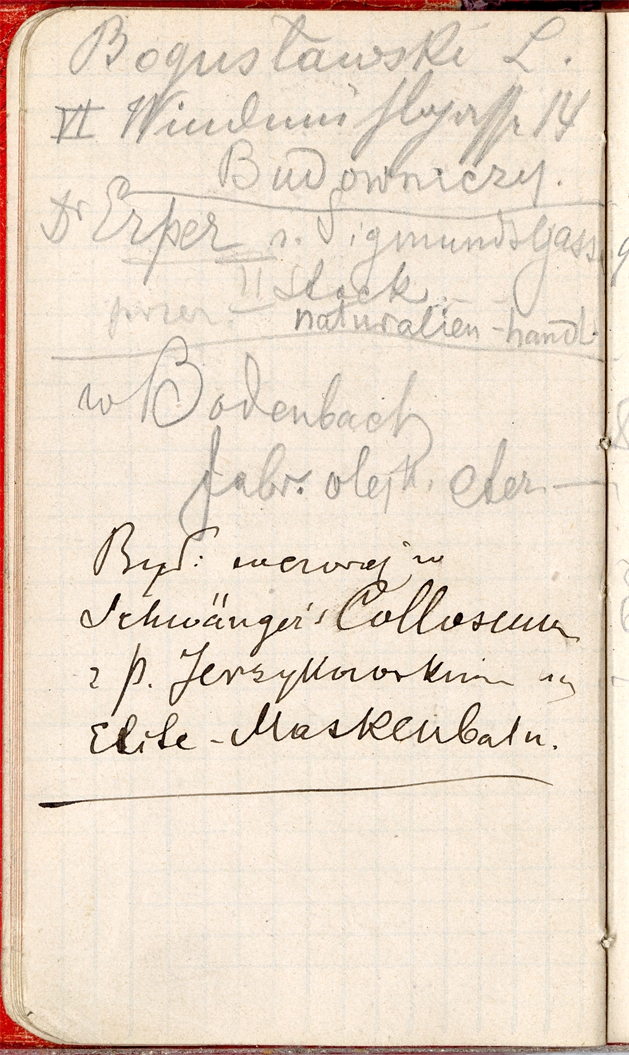 Bogusławski L.
VI Windmühlgasse 14
Budowniczy.
Dr Erper Sigmundsgasse
II Stock
naturalien-handl.
w Bodenbach
fabr. olejk. eter.
Był: wczoraj w
Schwänger's Collosseum
z p. Jerzykowskim na
Elite-Maskenball.